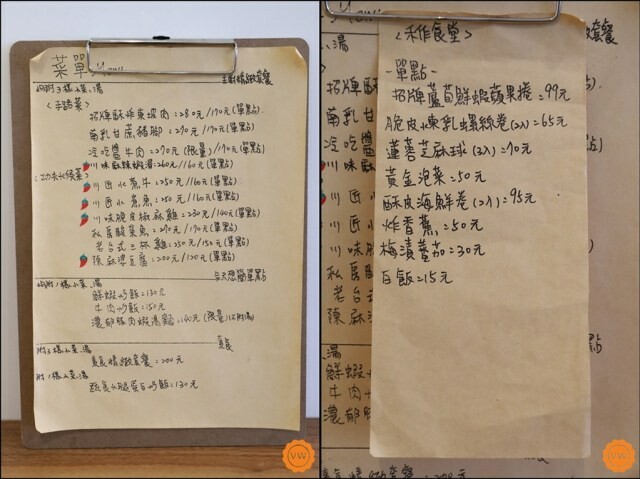 菜單 Menu
主廚精緻套餐
均附3樣小菜、湯
<手路菜>
招牌酥炸東坡肉=280元/190元(單點)
南乳甘蔗豬腳=270元/190元(單點)
冷吃醬牛肉=270元(限量)/190元(單點)
川味麻辣蝦滑=260元/160元(單點)
<功夫火候菜>
川匠水煮牛=250元/160元(單點)
川匠水煮魚=250元/160元(單點)
川味脆皮椒麻雞=230元/140元(單點)
私房酸菜魚=290元/190元(單點)
老台式三杯雞=250元/150元(單點)
陳麻婆豆腐=200元/120元(單點)
今天想簡單點
均附1樣小菜、湯
鮮蝦炒飯=130元
牛肉炒飯=150元
濃郁豬肉蝦湯麵=140元(限量)(不附湯)
附3樣小菜、湯
素食精緻套餐=200元
附1樣小菜、湯
蔬食大腿蛋白炒飯=130元
<禾作食堂>
-單點-
招牌蘆筍鮮蝦蘋果捲=99元
脆皮煉乳螺絲卷(2入)=65元
蓮蓉芝麻球(3入)=70元
黃金泡菜=50元
酥皮海鮮卷(2入)=95元
炸香蕉=50元
梅漬蕃茄=30元
白飯=15元
VW
VW